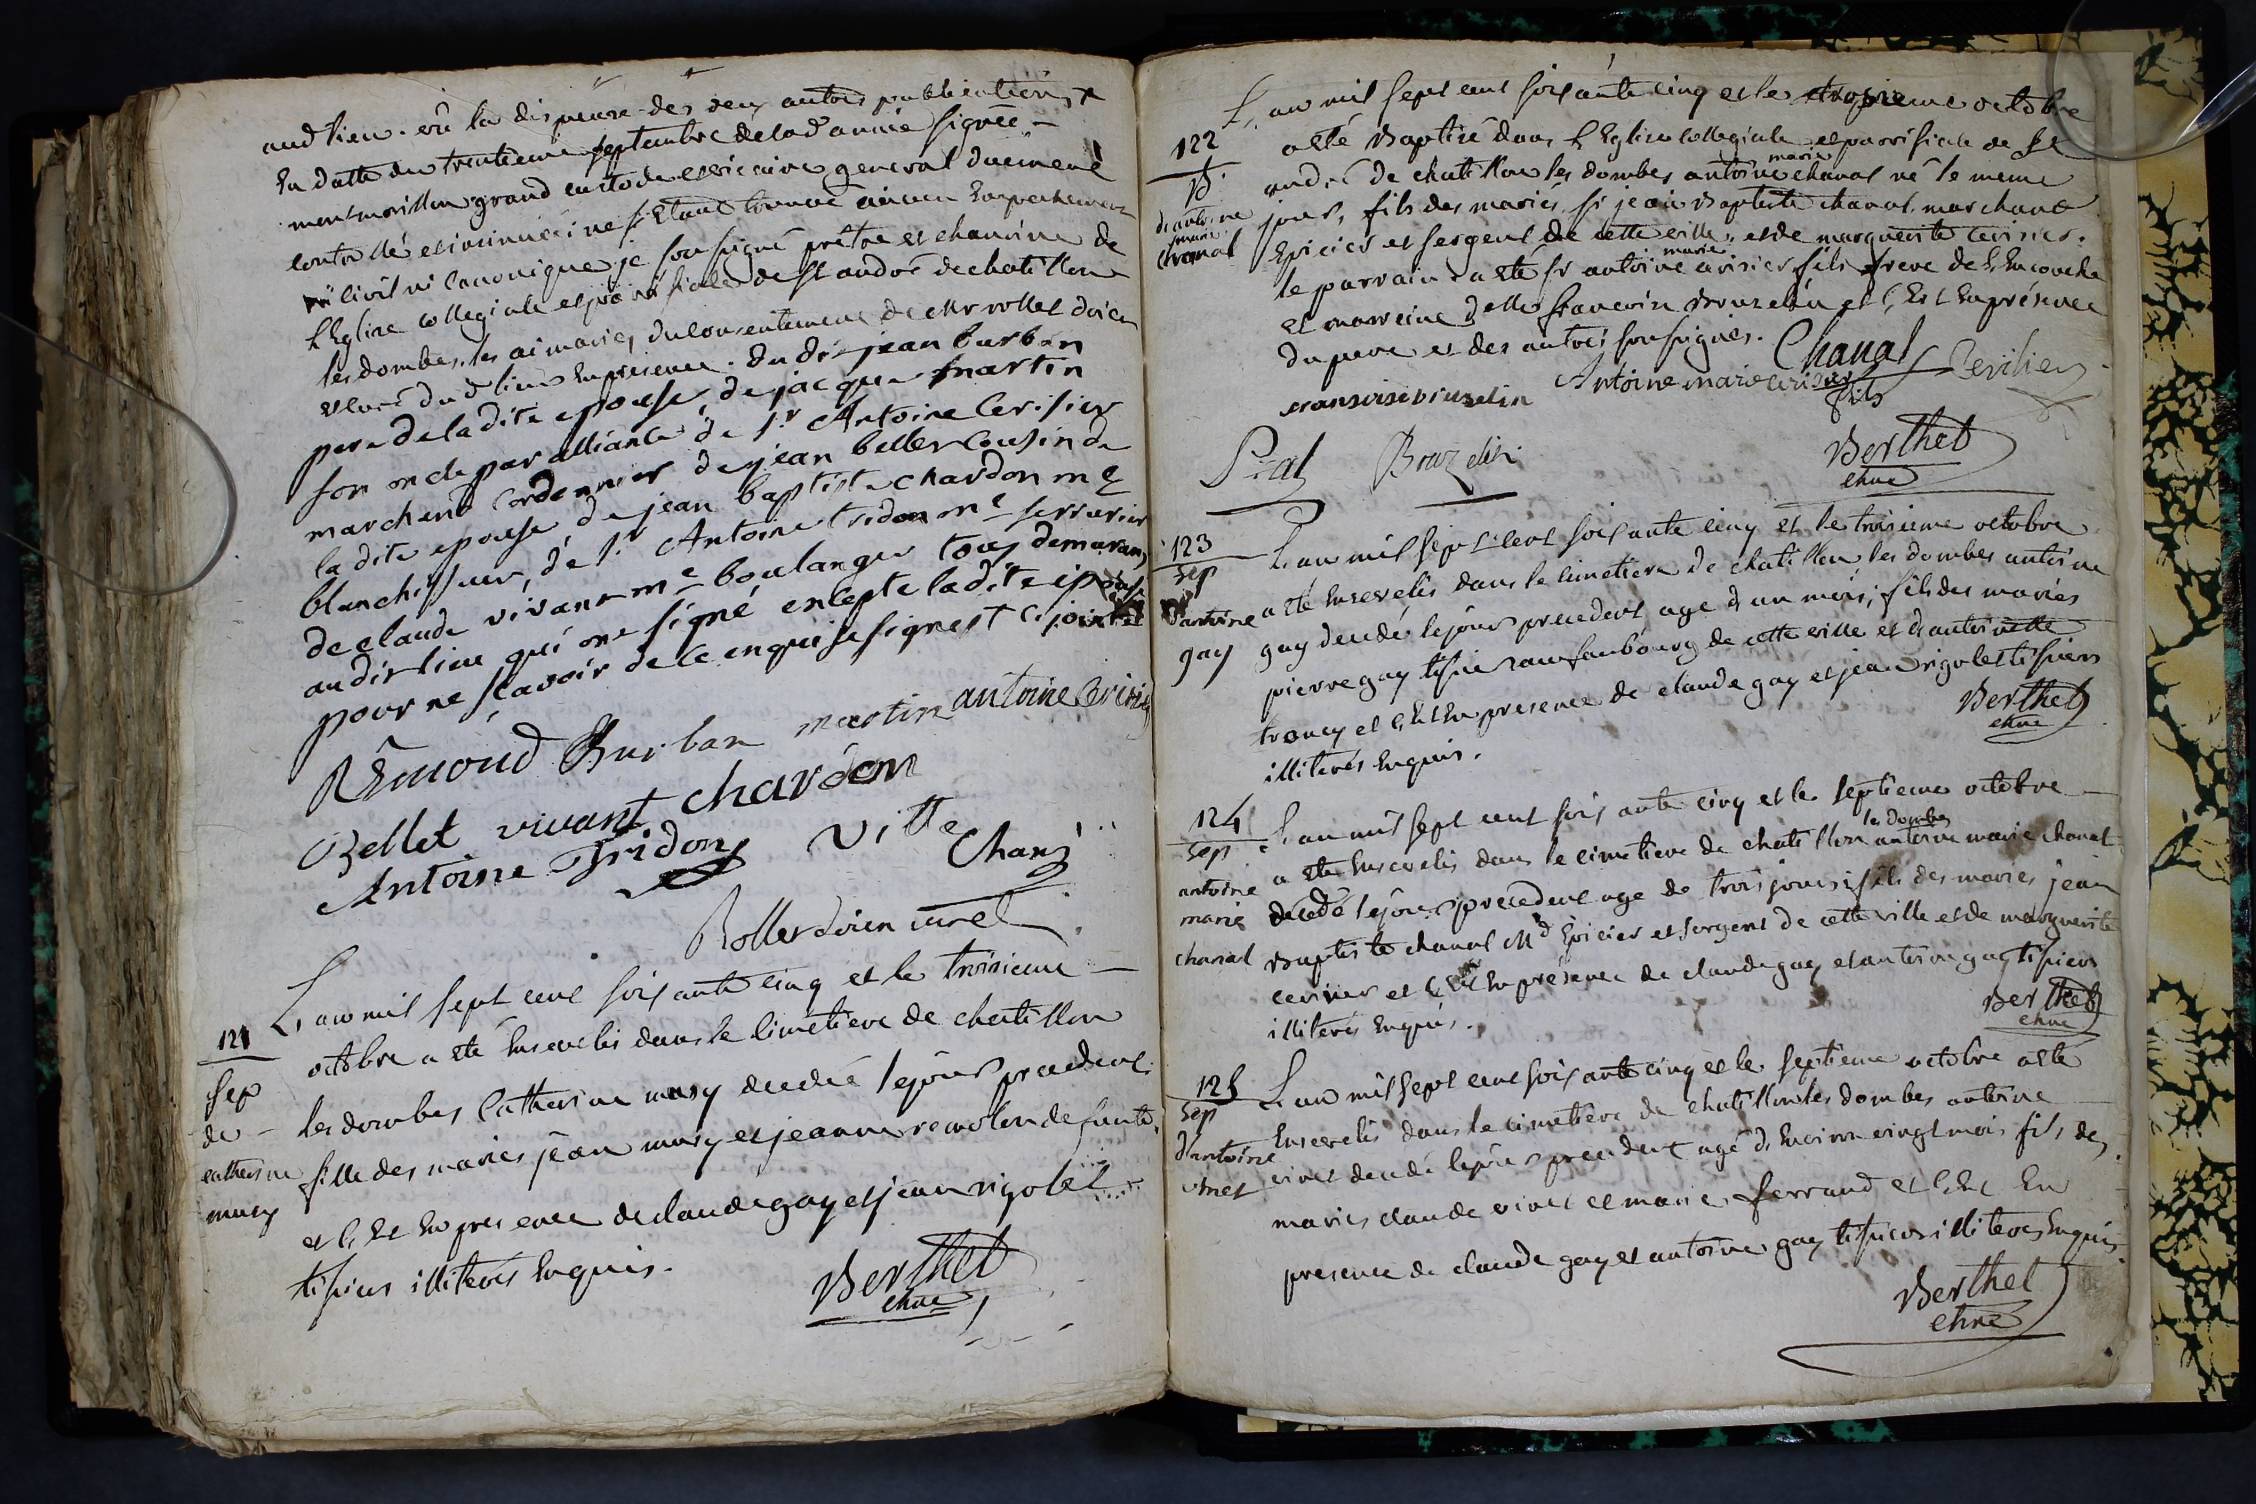 aud lieu. vû la dispense des deux autres publications
En datte du trentieme septembre de lad. année signée
montmorillon grand custode et vicaire general duement
controllé et insinuée; ne s'étant trouvé aucun Empechement
ni civil ni Canonique je soussigné prêtre et chanoine de
L'Eglise collegiale et paroissiale de St andré de chatillon
les dombes, les ai mariés du consentement de Mr rollet doien
et curé dud lieu En presence. du dit jean burban
pere de la dite epouse, de jacque martin
son oncle par alliance de sr Antoine Cerisier
marchand Cordonnier de jean bellet Cousin de
la dite epouse de jean baptiste chardon me
blanchisseur, de sr Antoine tridon me serrurier
de claude vivant me boulanger tous demurans
audit lieu qui ont signé excepte la dite epouse
pour ne sçavoir de ce enquise
Rêmond Burban martin antoine Cerisier
Bellet vivant chardon
Antoine Tridon Vitte
Chanê
Rollet doien curé
121
Sep
de
catherine
mury
L'an mil sept cent soixante cinq et le troisieme
octobre a été Enseveli dans le cimetiere de chatillon
les dombes Catherine mury decedée le jour precedent
fille des mariés jean mury et jeanne defunte,
et c'Est En presence de claude gay et jean rigolet
tisseurs illiterés Enquis.
Berthet
chne
122
B
d'antoine
marie
Chanal
L'an mil sept cent soixante cinq et le troisieme octobre
a été Baptisé dans L'Eglise collegiale et parroissiale de St
andré de chatillon les dombes antoine marie chanal né le meme
jour, fils des mariés sr jean Baptiste chanal marchand
Epicier et sergent de cette ville, et de marguerite cerisier.
le parrain a été sr antoine marie cerisier fils frere de L'Encouchée
et marreine delle francoise Brouzelin et c'Est En présence
du pere et des autres soussignés.
Chanal
Antoine marie cerisier fils Cerisier
Brauzelin
Berthet
chne
123
Sep
d'antoine
gay
L'an mil sept cent soixante cinq et le troisieme octobre
a été Enseveli dans le cimetiere de chatillon les dombes antoine
gay decedé le jour precedent age d'un mois, fils des mariés
pierre gay tisseur au faubourg de cette ville et d'antoinette
trancy et c'Est En presence de claude gay et jean rigolet tisseurs
illiterés Enquis.
Berthet
chne
124
Sep
antoine
marie
chanal
L'an mil sept cent soixante cinq et le septieme octobre
a été Enseveli dans le cimetiere de chatillon les dombes antoine marie chanal
decedé le jour precedent age de trois jours; fils des maries jean
Baptiste chanal Md Epicier et sergent de cette ville et de marguerite
cerisier et c'Est En présence de claude gay et antoine gay tisseurs
illiterés Enquis.
Berthet
chne
125
Sep
d'antoine
vinet
L'an mil sept cent soixante cinq et le septieme octobre a été
Enseveli dans le cimetiere de chatillon les dombes antoine
vinet decedé le jour precedent agé d'Environ vingt mois fils des
mariés claude vinet et marie ferrand et c'Est En
presence de claude gay et antoine gay tisseurs illiteres Enquis
Berthet
chne